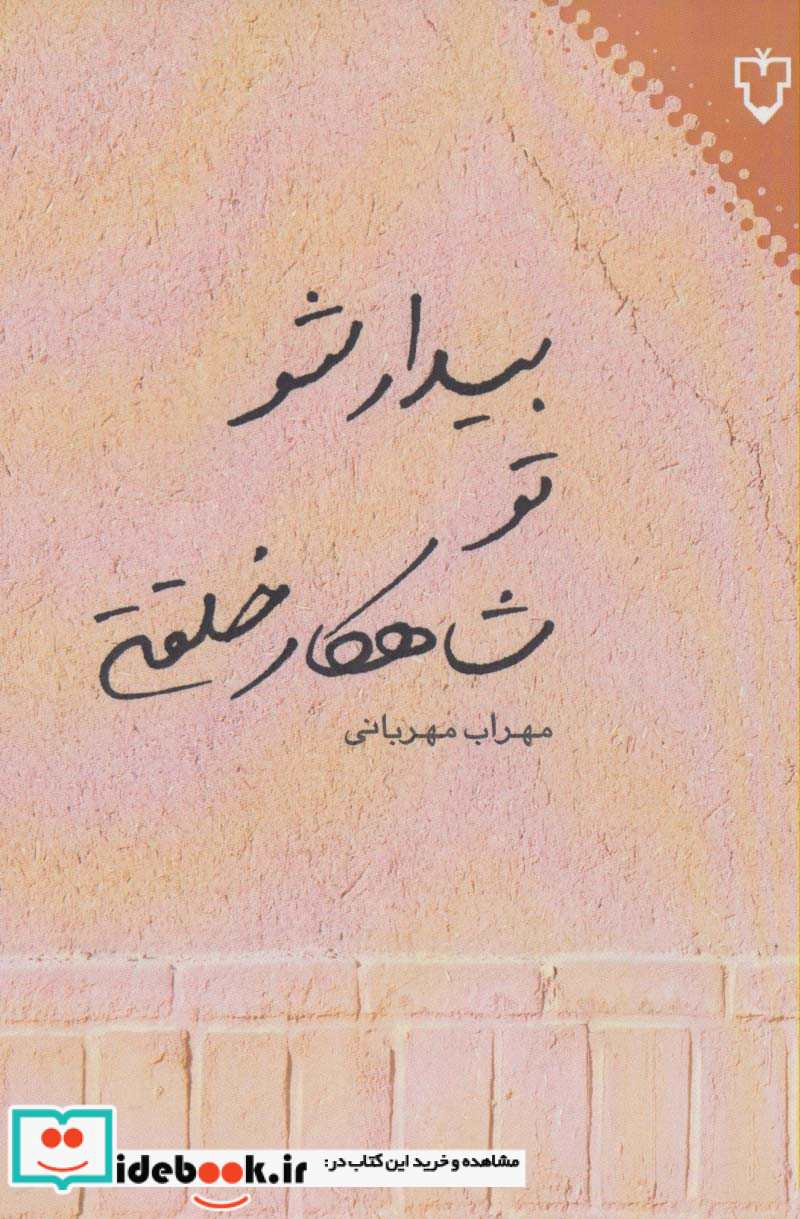 بیدار شو
تو
شاهکار خلقتی
مهراب مهربانی
مشاهده و خرید این کتاب در:
idebook.ir